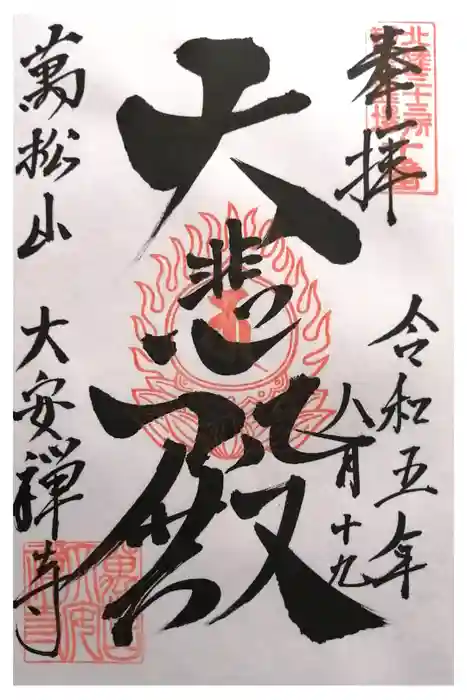 奉拝
令和五年
八月十九
大悲殿
萬松山 大安禅寺